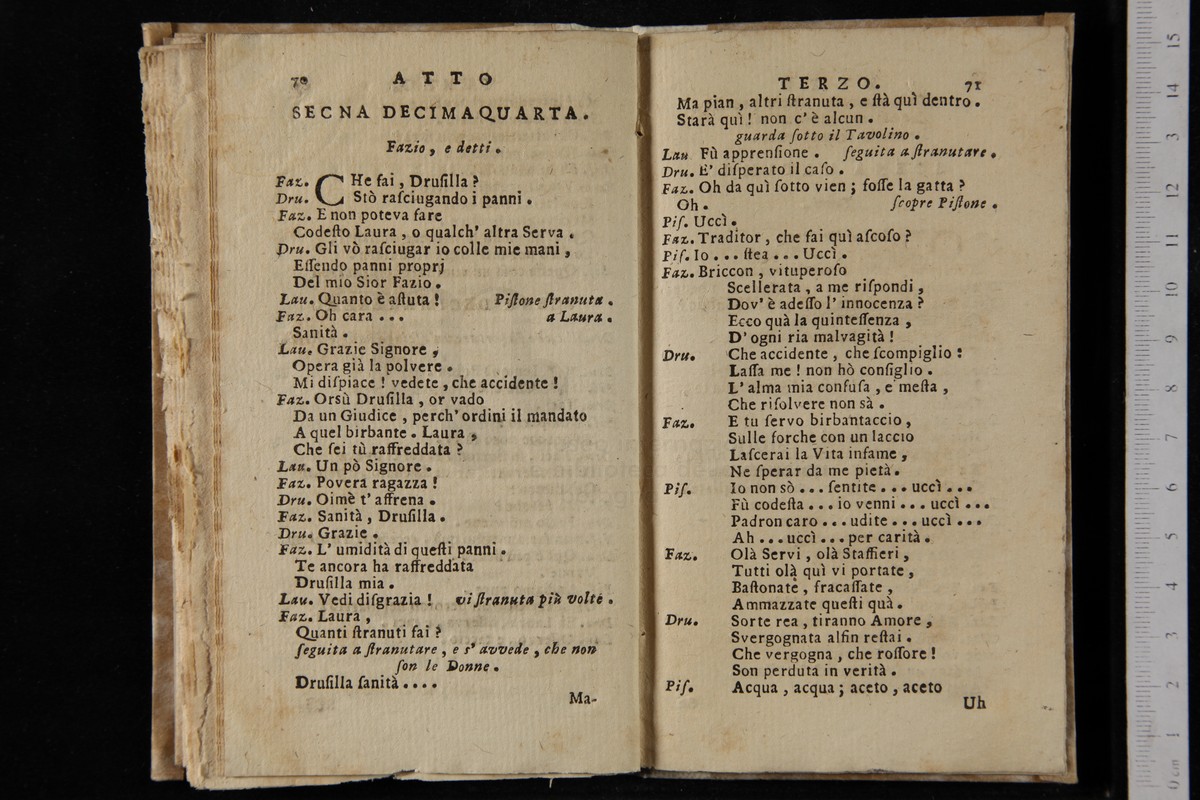 70 ATTO
SECNA DECIMAQUARTA.
Fazio, e detti.
Faz. CHe fai, Druſilla?
Dru. Stò raſciugando i panni.
Faz. E non poteva fare
Codeſto Laura, o qualch' altra Serva.
Dru. Gli vò raſciugar io colle mie mani,
Eſſendo panni proprj
Del mio Sior Fazio.
Lau. Quanto è aſtuta! Piſtone ſtranuta.
Faz. Oh cara ... a Laura.
Sanità.
Lau. Grazie Signore,
Opera già la polvere.
Mi diſpiace! vedete, che accidente!
Faz. Orsù Druſilla, or vado
Da un Giudice, perch' ordini il mandato
A quel birbante. Laura,
Che ſei tù raffreddata?
Lau. Un pò Signore.
Faz. Povera ragazza!
Dru. Oimè t' affrena.
Faz. Sanità, Druſilla.
Dru. Grazie.
Faz. L' umidità di queſti panni.
Te ancora ha raffreddata
Druſilla mia.
Lau. Vedi diſgrazia! vi ſtranuta più volte.
Faz. Laura,
Quanti ſtranuti fai?
ſeguita a ſtranutare, e s' avvede, che non
ſon le Donne.
Druſilla ſanità....
Ma-
TERZO. 71
Ma pian, altri ſtranuta, e ſtà quì dentro.
Starà quì! non c' è alcun.
guarda ſotto il Tavolino.
Lau Fù apprenſione. ſeguita a ſtranutare.
Dru. E' diſperato il caſo.
Faz. Oh da quì ſotto vien; foſſe la gatta?
Oh. ſcopre Piſtone.
Piſ. Uccì.
Faz. Traditor, che fai quì aſcoſo?
Piſ. Io ... ſtea ... Uccì.
Faz. Briccon, vituperoſo
Scellerata, a me riſpondi,
Dov' è adeſſo l' innocenza?
Ecco quà la quinteſſenza,
D' ogni ria malvagità!
Dru. Che accidente, che ſcompiglio!
Laſſa me! non hò conſiglio.
L' alma mia confuſa, e meſta,
Che riſolvere non sà.
Faz. E tu ſervo birbantaccio,
Sulle forche con un laccio
Laſcerai la Vita infame,
Ne ſperar da me pietà.
Piſ. Io non sò ... ſentite ... uccì ...
Fù codeſta ... io venni ... uccì ...
Padron caro ... udite ... uccì ...
Ah ... uccì ... per carità.
Faz. Olà Servi, olà Staffieri,
Tutti olà quì vi portate,
Baſtonate, fracaſſate,
Ammazzate queſti quà.
Dru. Sorte rea, tiranno Amore,
Svergognata alfin reſtai.
Che vergogna, che roſſore!
Son perduta in verità.
Piſ. Acqua, acqua; aceto, aceto
Uh
0 cm 1 2 3 4 5 6 7 8 9 10 11 12 13 14 15